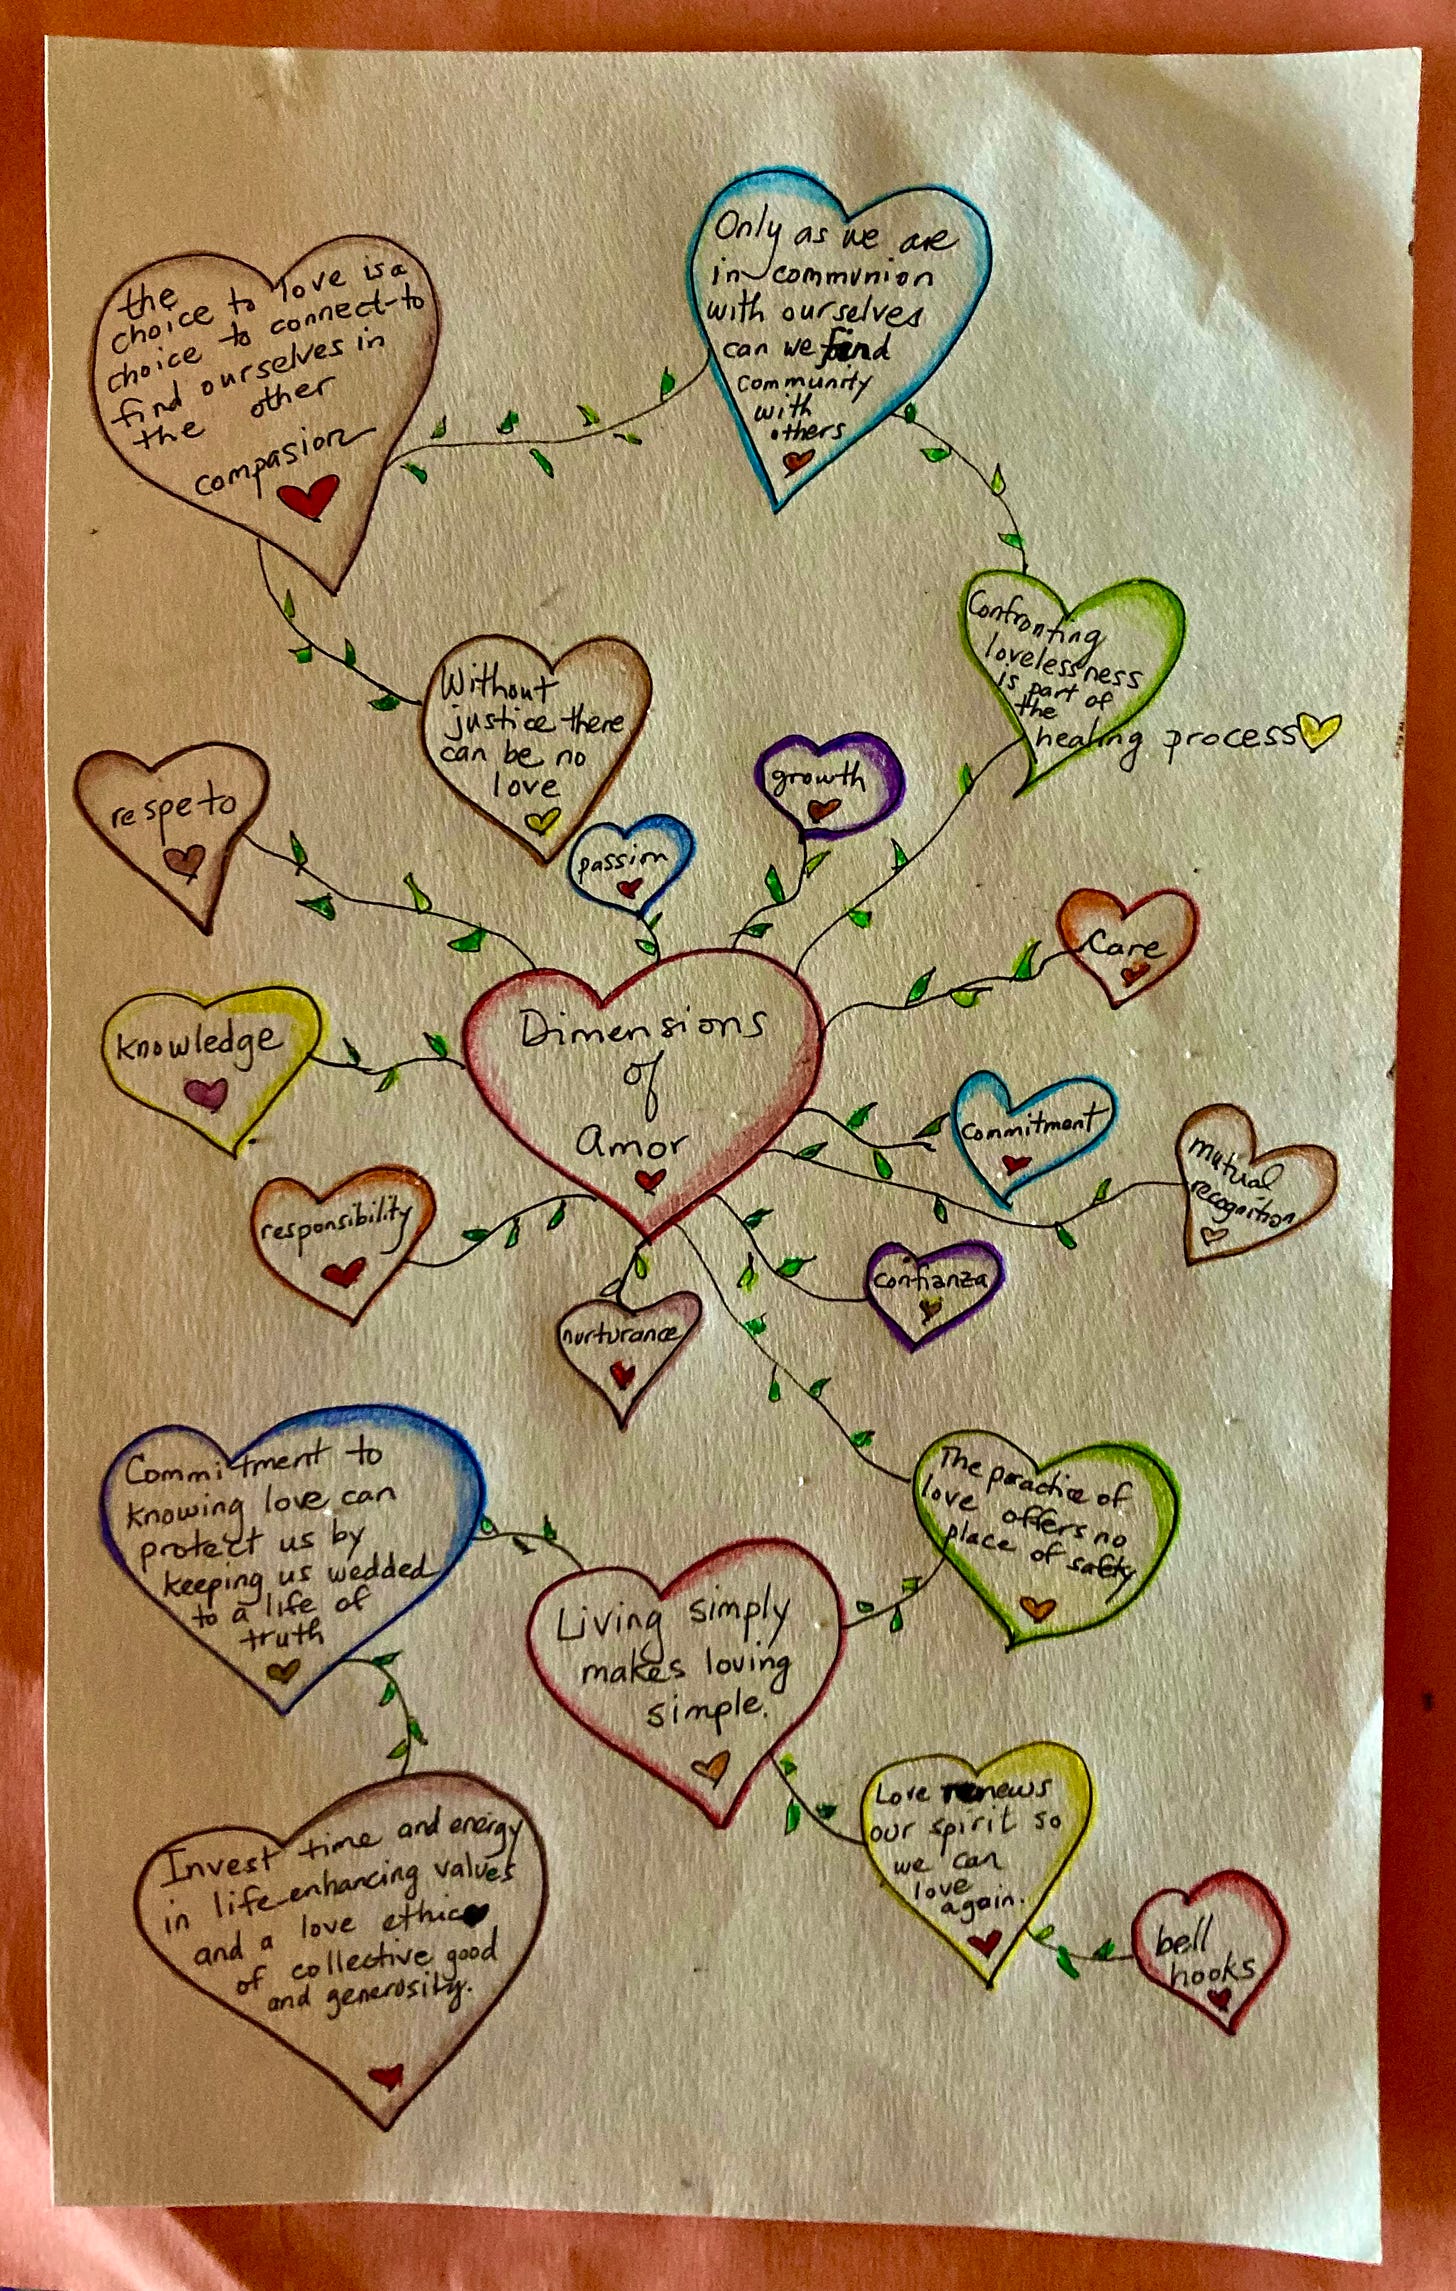 the
choice to love is a
choice to connect-to
find ourselves in
the other
compasion
Only as we are
in communion
with ourselves
can we find
community
with
others
Confronting
lovelessness
is part of
the
healing process
Without
justice there
can be no
love
respeto
passion
growth
Care
knowledge
Dimensions
of
amor
Commitment
mutual
recognition
responsibility
confianza
nurturance
Commitment to
knowing love can
protect us by
keeping us wedded
to a life of
truth
The practice of
love offers no
place of safety
Living simply
makes loving
simple.
Love renews
our spirit so
we can
love
again.
Invest time and energy
in life-enhancing values
and a love ethic
of collective good
and generosity.
bell
hooks